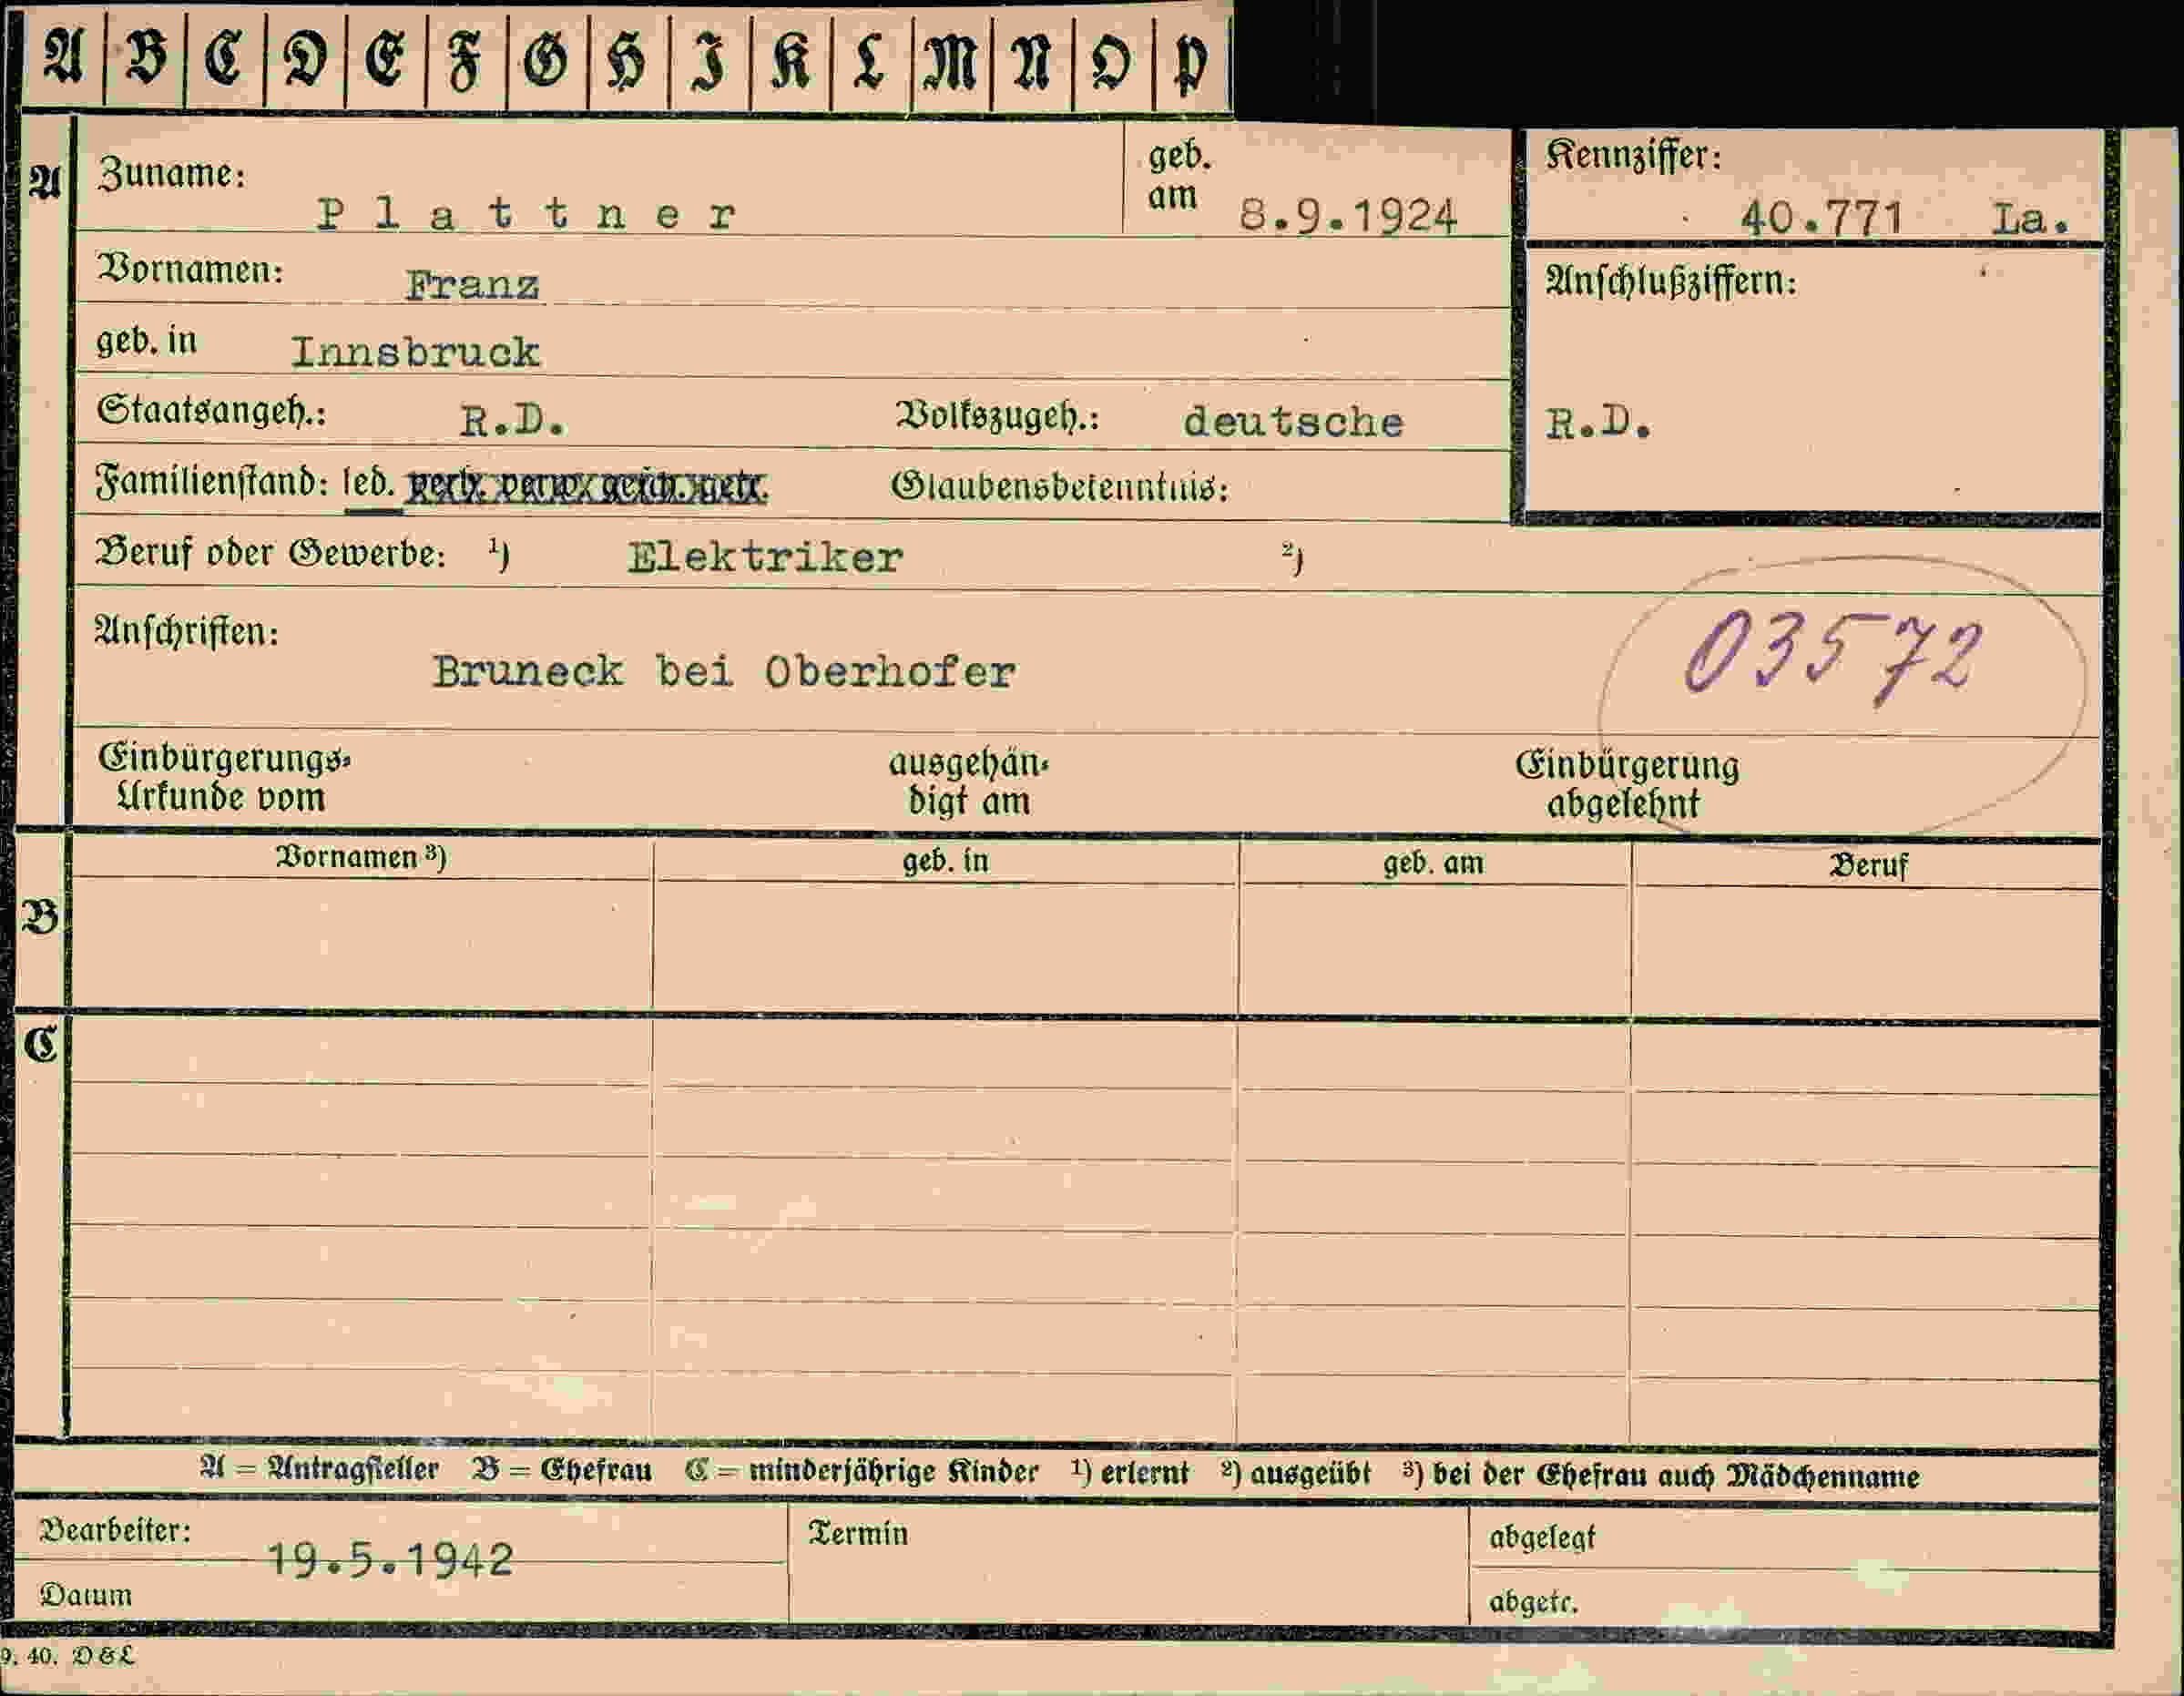 A B C D E F G H I K L M N O P
A Zuname: Plattner geb. am 8.9.1924 Kennziffer: 40.771 La.
Vornamen: Franz Anschlußziffern:
geb. in Innsbruck
Staatsangeh.: R.D. Volkszugeh.: deutsche R.D.
Familienstand: led. verh. verw. gesch. getr. Glaubensbekenntnis:
Beruf oder Gewerbe: ¹) Elektriker ²)
Anschriften: 03572
Bruneck bei Oberhofer
Einbürgerungs- ausgehän- Einbürgerung
Urkunde vom digt am abgelehnt
Vornamen ³) geb. in geb. am Beruf
B
C
A = Antragsteller B = Ehefrau C = minderjährige Kinder ¹) erlernt ²) ausgeübt ³) bei der Ehefrau auch Mädchenname
Bearbeiter: Termin abgelegt
19.5.1942
Datum abgetr.
9. 40. D & L